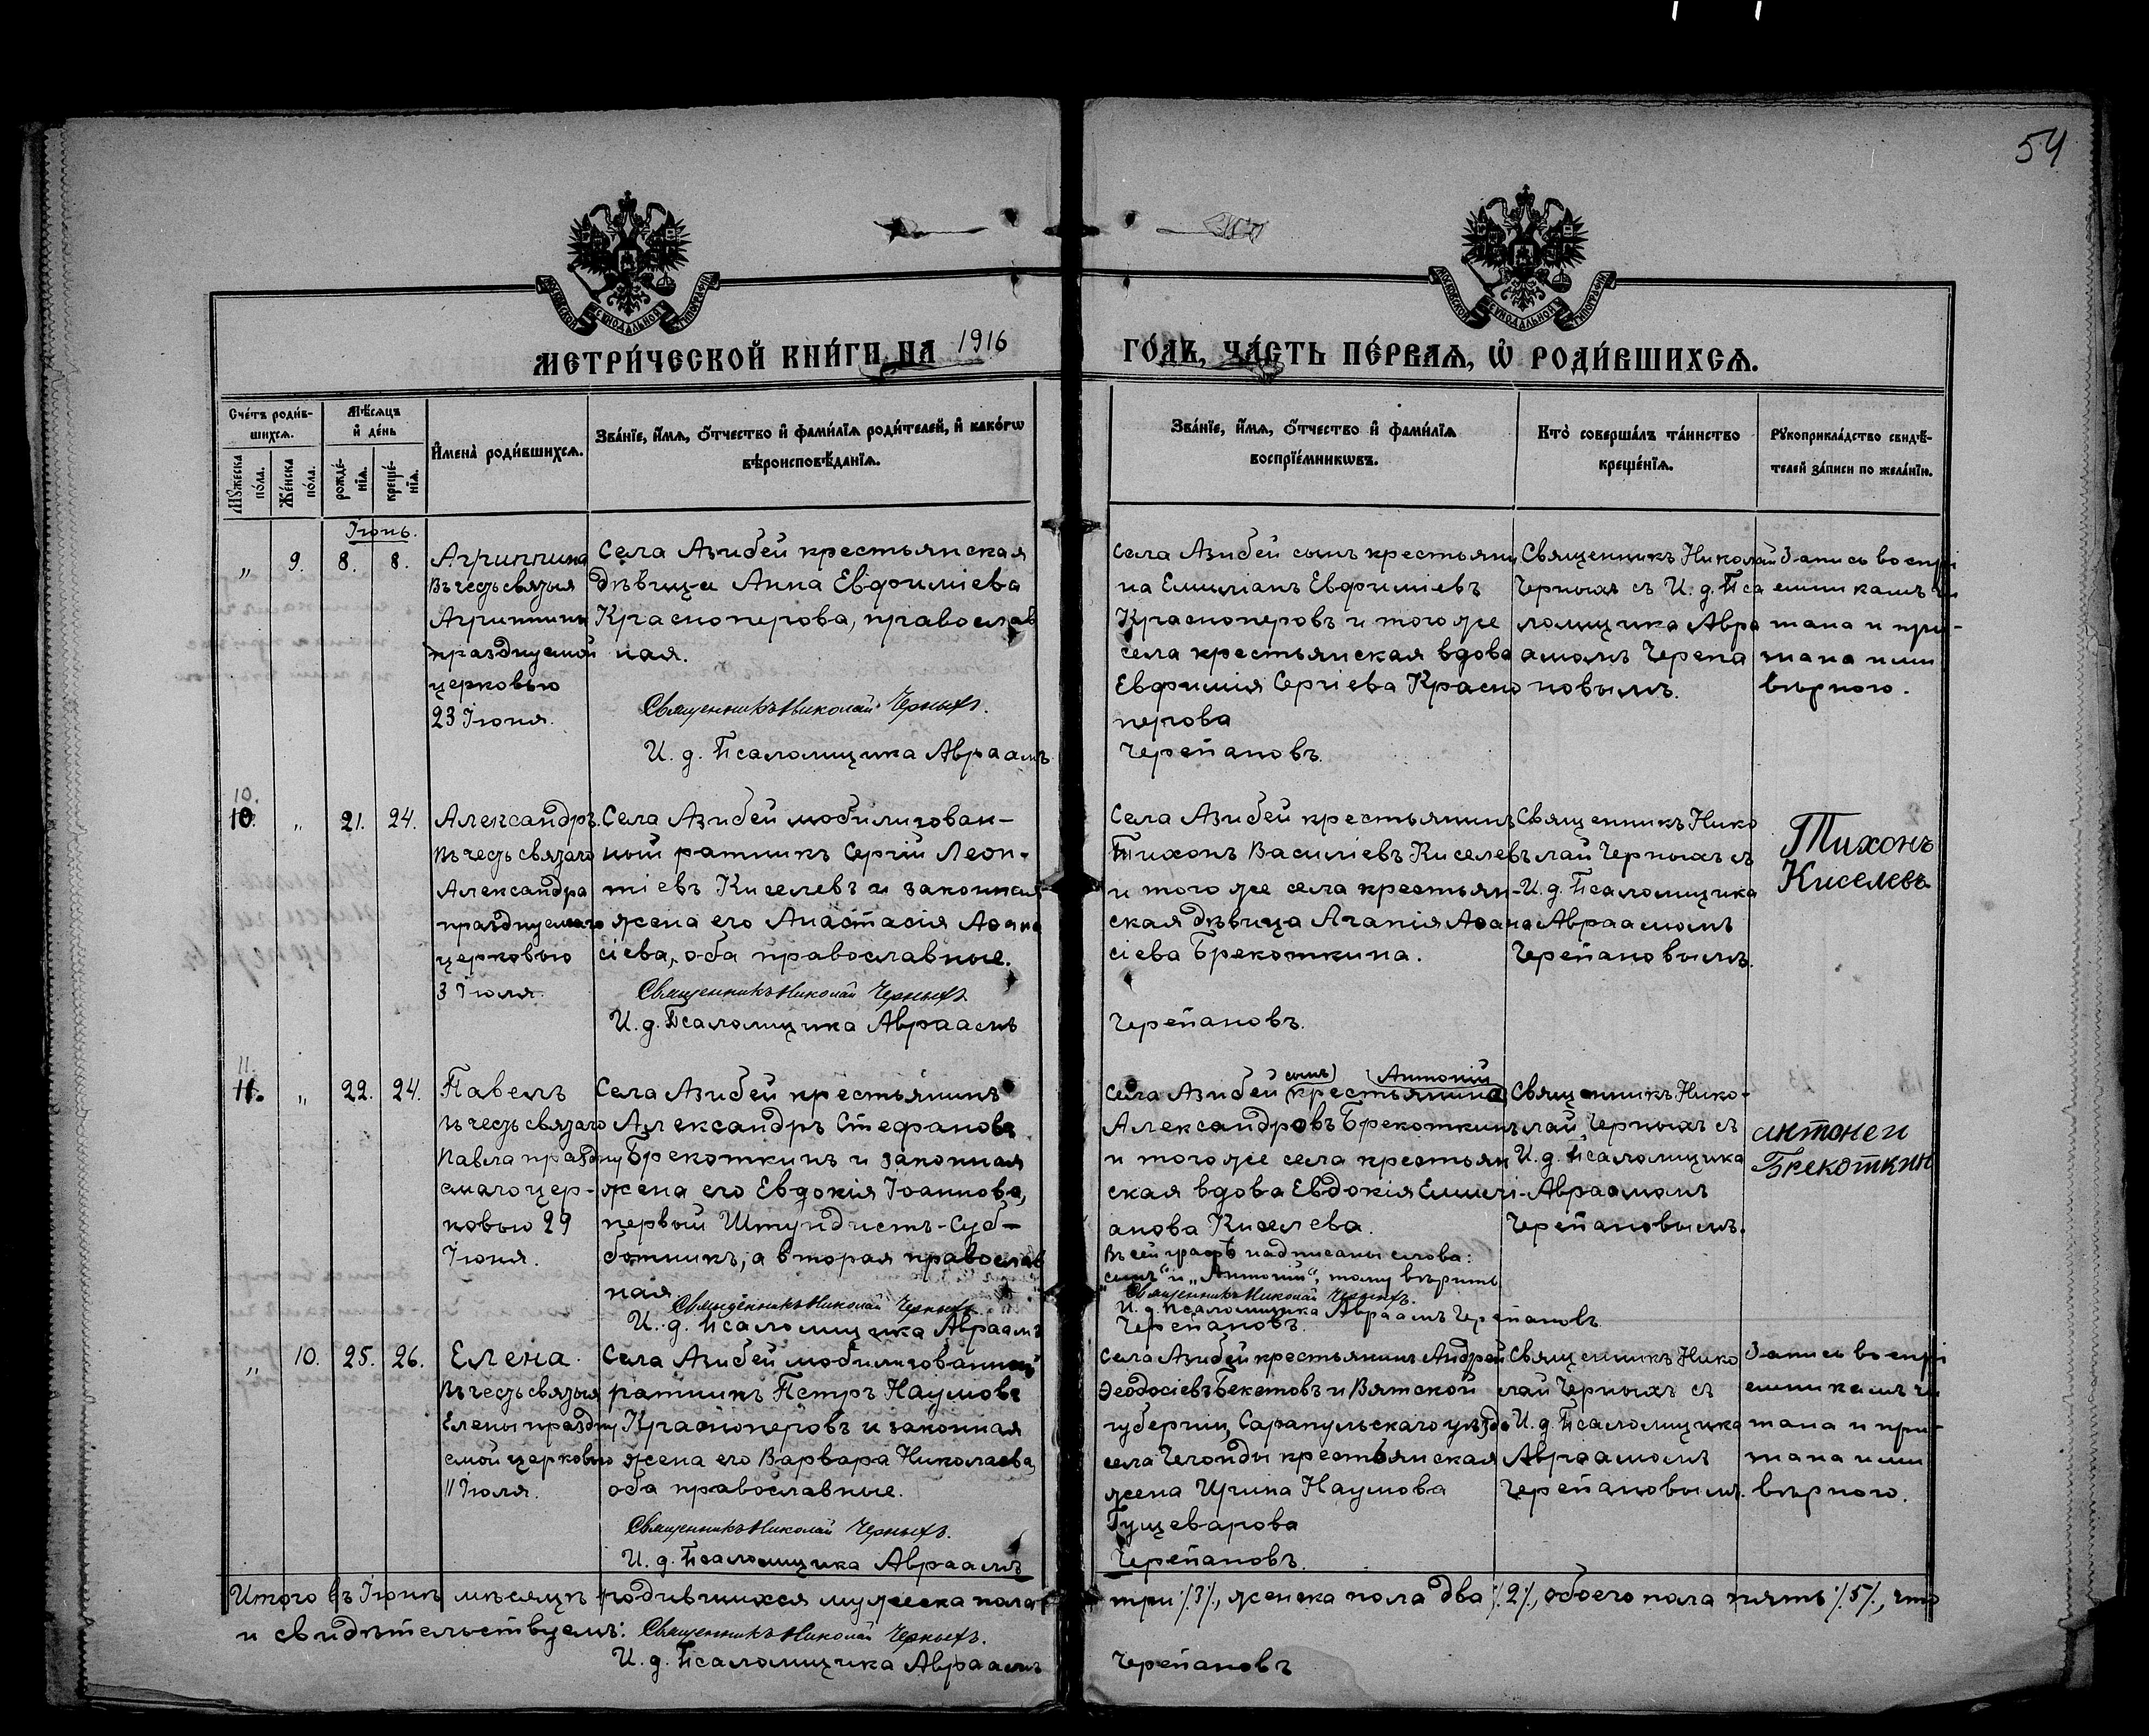 54
МОСКОВСКОЙ СѴНОДАЛЬНОЙ ТИПОГРАФІИ
МОСКОВСКОЙ СѴНОДАЛЬНОЙ ТИПОГРАФІИ
МЕТРИ́ЧЕСКОЙ КНИ́ГИ НА 1916
ГО́ДЪ, ЧА́СТЬ ПЕ́РВАѦ, Ѡ҆ РОДИ́ВШИХСѦ.
Сче́тъ роди́в-
шихсѧ.
Мѣ́сѧцъ
и҆ де́нь
Мꙋ́жеска
по́ла.
Же́нска
по́ла.
рожде́-
нїѧ.
креще́-
нїѧ.
И҆мена̀ роди́вшихсѧ.
Зва́нїе, и҆́мѧ, ѻ҆́тчество и҆ фами́лїѧ роди́телей, и҆ како́гѡ
вѣроисповѣ́данїѧ.
Зва́нїе, и҆́мѧ, ѻ҆́тчество и҆ фами́лїѧ
воспрїе́мникѡвъ.
Кто̀ соверша́лъ та́инство
креще́нїѧ.
Рꙋкоприкла́дство свидѣ́-
телей за́писи по жела́нїю.
Іюнь.
„ 9. 8. 8.
Агриппина
Въ честь святыя
Агриппины
празднуемой
церковью
23 Іюня.
Села Азибей крестьянская
дѣвица Анна Евфиміева
Красноперова, православ
ная.
Священникъ Николай Черныхъ.
И. д. Псаломщика Авраамъ
Села Азибей сынъ крестьяни
на Емиліанъ Евфиміевъ
Красноперовъ и того же
села крестьянская вдова
Евфимія Сергіева Красно
перова
Черепановъ.
Священникъ Николай
Черныхъ съ И. д. Пса
ломщика Авра
амомъ Черепа
новымъ.
Запись воспрі
емникамъ чи
тана и при-
знана ими
вѣрною.
10.
10. „ 21. 24.
Александръ.
Въ честь святаго
Александра
празднуемаго
церковью
3 Іюля.
Села Азибей мобилизован-
ный ратникъ Сергій Леон-
тіевъ Киселевъ и законная
жена его Анастасія Аѳана
сіева, оба православные.
Священникъ Николай Черныхъ
И. д. Псаломщика Авраамъ
Села Азибей крестьянинъ
Тихонъ Василіевъ Киселевъ
и того же села крестьян-
ская дѣвица Агапія Аѳана
сіева Брекоткина.
Черепановъ.
Священникъ Нико
лай Черныхъ съ
И. д. Псаломщика
Авраамомъ
Черепановымъ.
Тихонъ
Киселевъ
11.
11. „ 22. 24.
Павелъ
Въ честь святаго
Павла праздну
емаго цер-
ковью 29
Іюня.
Села Азибей крестьянинъ
Александръ Стефановъ
Брекоткинъ и законная
жена его Евдокія Іоаннова,
первый Штундистъ-Суб-
ботникъ, а вторая православ
ная
Священникъ Николай Черныхъ
И. д. Псаломщика Авраамъ
сынъ Антоній
Села Азибей крестьянина
Александровъ Брекоткинъ
и того же села крестьян
ская вдова Евдокія Емилі-
анова Киселева.
Въ сей графѣ надписаны слова:
„сынъ“ и „Антоній“, тому вѣрить
Священникъ Николай Черныхъ.
И. д. Псаломщика Авраамъ Черепановъ
Черепановъ.
Священникъ Нико-
лай Черныхъ съ
И. д. Псаломщика
Авраамомъ
Черепановымъ.
антоней
Брекоткин
„ 10. 25. 26.
Елена.
Въ честь святыя
Елены праздну
емой церковью
11 Іюля.
Села Азибей мобилизованный
ратникъ Петръ Наумовъ
Красноперовъ и законная
жена его Варвара Николаева,
оба православные.
Священникъ Николай Черныхъ.
И. д. Псаломщика Авраамъ
Села Азибей крестьянинъ Андрей
Ѳеодосіевъ Бекетовъ и Вятской
губерніи, Сарапульскаго уѣзда
села Чегонды крестьянская
жена Ирина Наумова
Гущеварова
Черепановъ.
Священникъ Нико
лай Черныхъ съ
И. д. Псаломщика
Авраамомъ
Черепановымъ.
Запись воспрі
емникамъ чи
тана и при-
знана ими
вѣрною.
Итого въ Іюнѣ мѣсяцѣ родившихся мужеска пола три ⁒3⁒, женска пола два ⁒2⁒, обоего пола пять ⁒5⁒, что
и свидѣтельствуемъ: Священникъ Николай Черныхъ.
И. д. Псаломщика Авраамъ Черепановъ